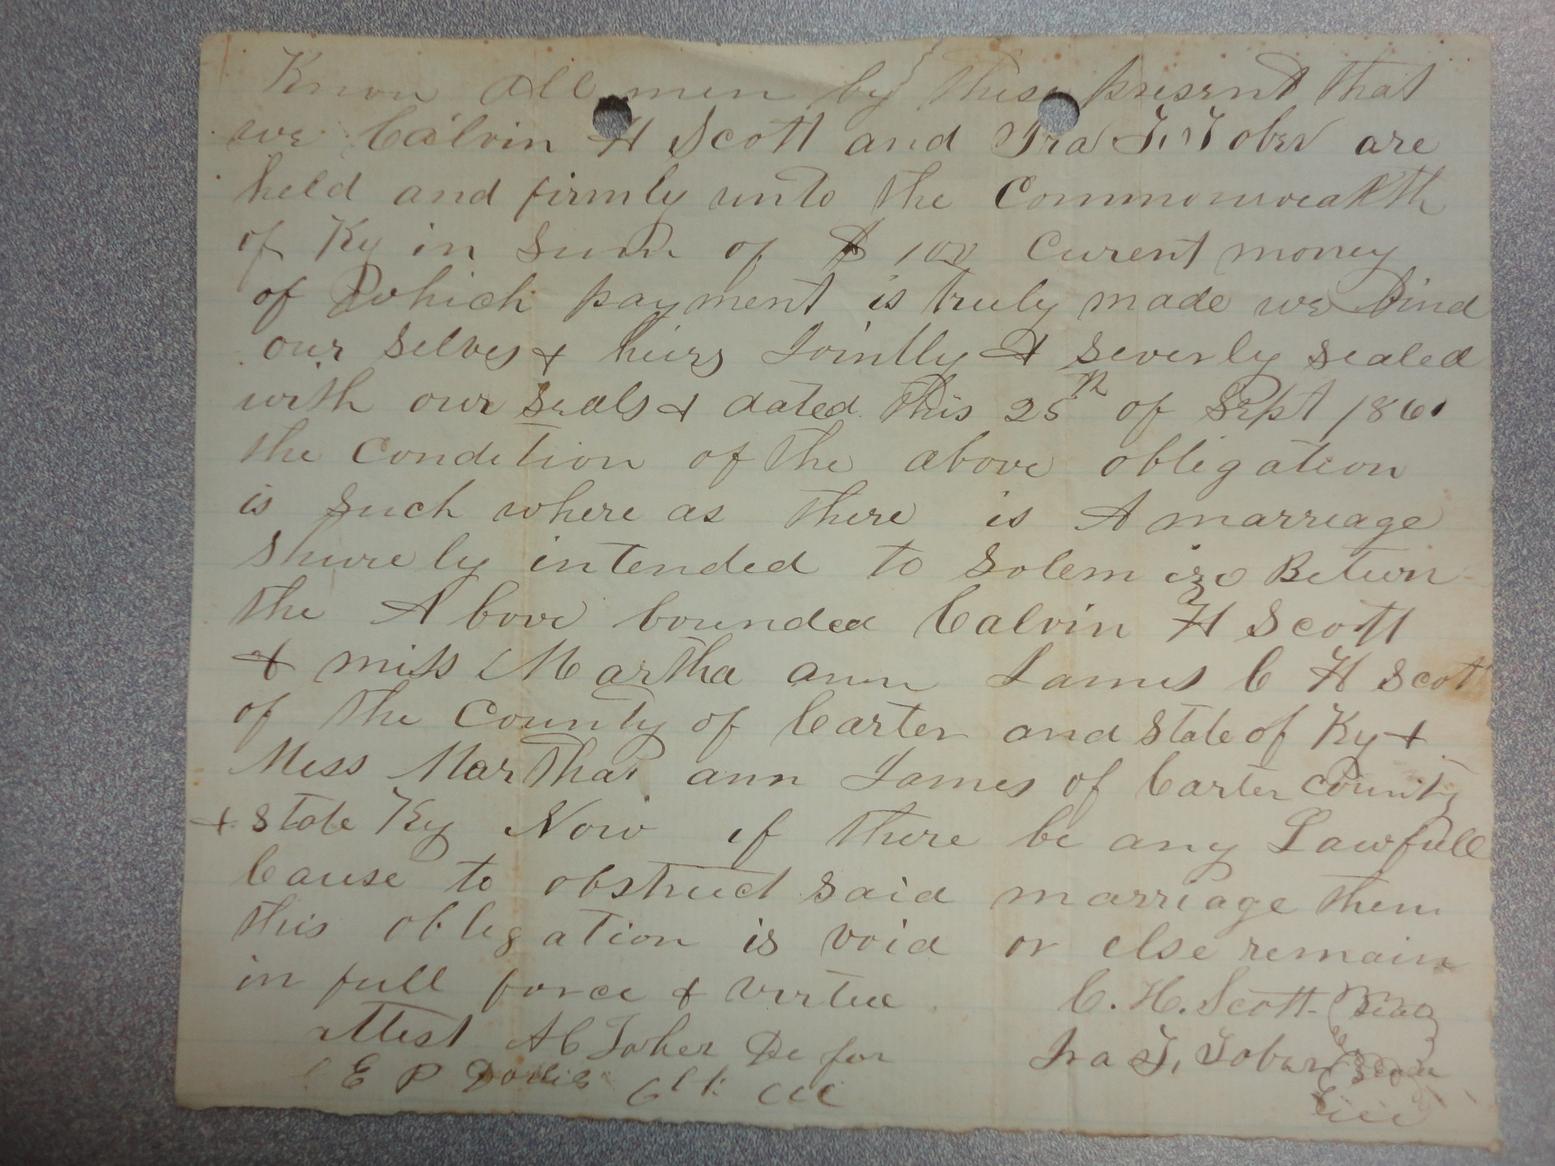 Know All men by these present that
we Calvin H Scott and Ira T. Tober are
held and firmly unto the Commonwealth
of Ky in Sum of $ 100 Curent money
of which payment is truly made we bind
our selves & heirs Jointly & severly sealed
with our seals & dated this 25th of Sept 1861
the Condition of the above obligation
is such where as there is A marriage
shurely intended to Solemize Betwen
the Above bounded Calvin H Scott
& miss Martha ann James C H Scott
of the County of Carter and state of Ky &
Miss Martha ann James of Carter County
& state Ky Now if there be any Lawfull
Cause to obstruct said marriage them
this obligation is void or else remain
in full force & virtue C. H. Scott Seal
Attest A C Tober De for Ira T. Tober Seal
E P Davis Clk CCC